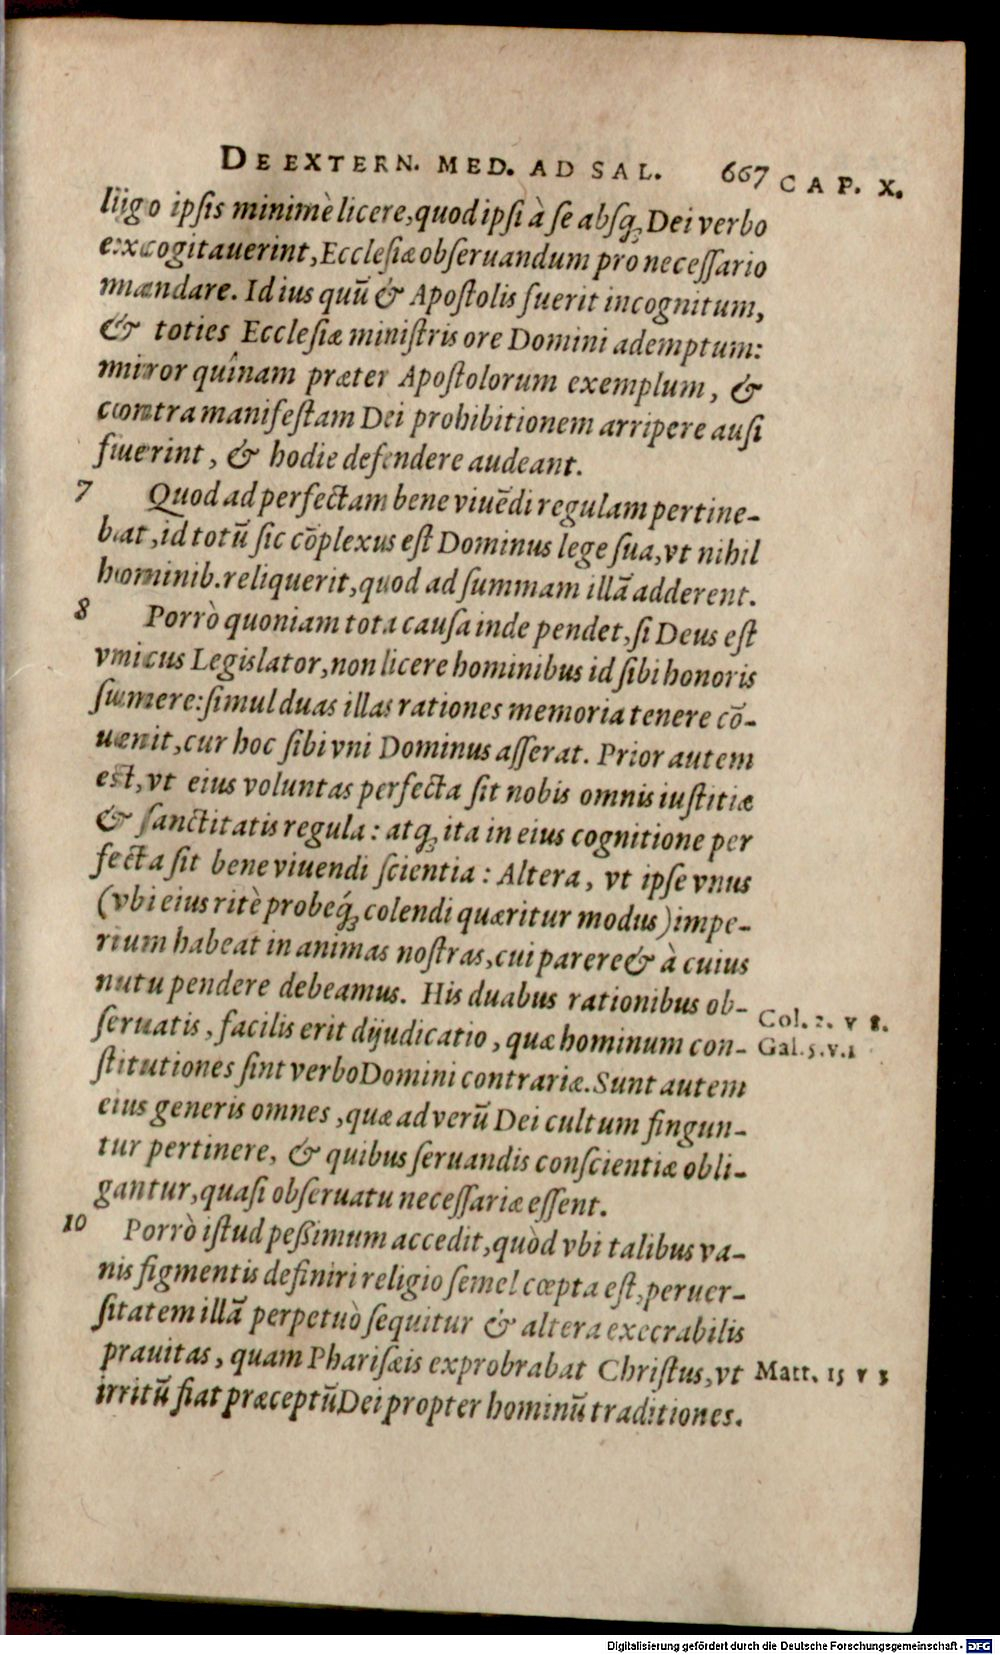 DE EXTERN. MED. AD SAL. 667 CAP. X.
ligo ipsis minimè licere, quod ipsi à se absq; Dei verbo
excogitauerint, Ecclesiæ obseruandum pro necessario
mandare. Id ius quũ & Apostolis fuerit incognitum,
& toties Ecclesiæ ministris ore Domini ademptum:
miror quînam præter Apostolorum exemplum, &
contra manifestam Dei prohibitionem arripere ausi
fuerint, & hodie defendere audeant.
7 Quod ad perfectam bene viuẽdi regulam pertine-
bat, id totũ sic cõplexus est Dominus lege sua, vt nihil
hominib. reliquerit, quod ad summam illã adderent.
8 Porrò quoniam tota causa inde pendet, si Deus est
vnicus Legislator, non licere hominibus id sibi honoris
sumere: simul duas illas rationes memoria tenere cõ-
uenit, cur hoc sibi vni Dominus asserat. Prior autem
est, vt eius voluntas perfecta sit nobis omnis iustitiæ
& sanctitatis regula: atq; ita in eius cognitione per
fecta sit bene viuendi scientia: Altera, vt ipse vnus
(vbi eius ritè probeq́; colendi quæritur modus) impe-
rium habeat in animas nostras, cui parere & à cuius
nutu pendere debeamus. His duabus rationibus ob-
seruatis, facilis erit dijudicatio, quæ hominum con-
Col. 2. v 8.
Gal. 5. v. 1
stitutiones sint verbo Domini contrariæ. Sunt autem
eius generis omnes, quæ ad verũ Dei cultum fingun-
tur pertinere, & quibus seruandis conscientiæ obli-
gantur, quasi obseruatu necessariæ essent.
10 Porrò istud peßimum accedit, quòd vbi talibus va-
nis figmentis definiri religio semel cœpta est, peruer-
sitatem illã perpetuò sequitur & altera execrabilis
prauitas, quam Pharisæis exprobrabat Christus, vt
Matt. 15 v 3
irritũ fiat præceptũ Dei propter hominũ traditiones.
Digitalisierung gefördert durch die Deutsche Forschungsgemeinschaft - DFG